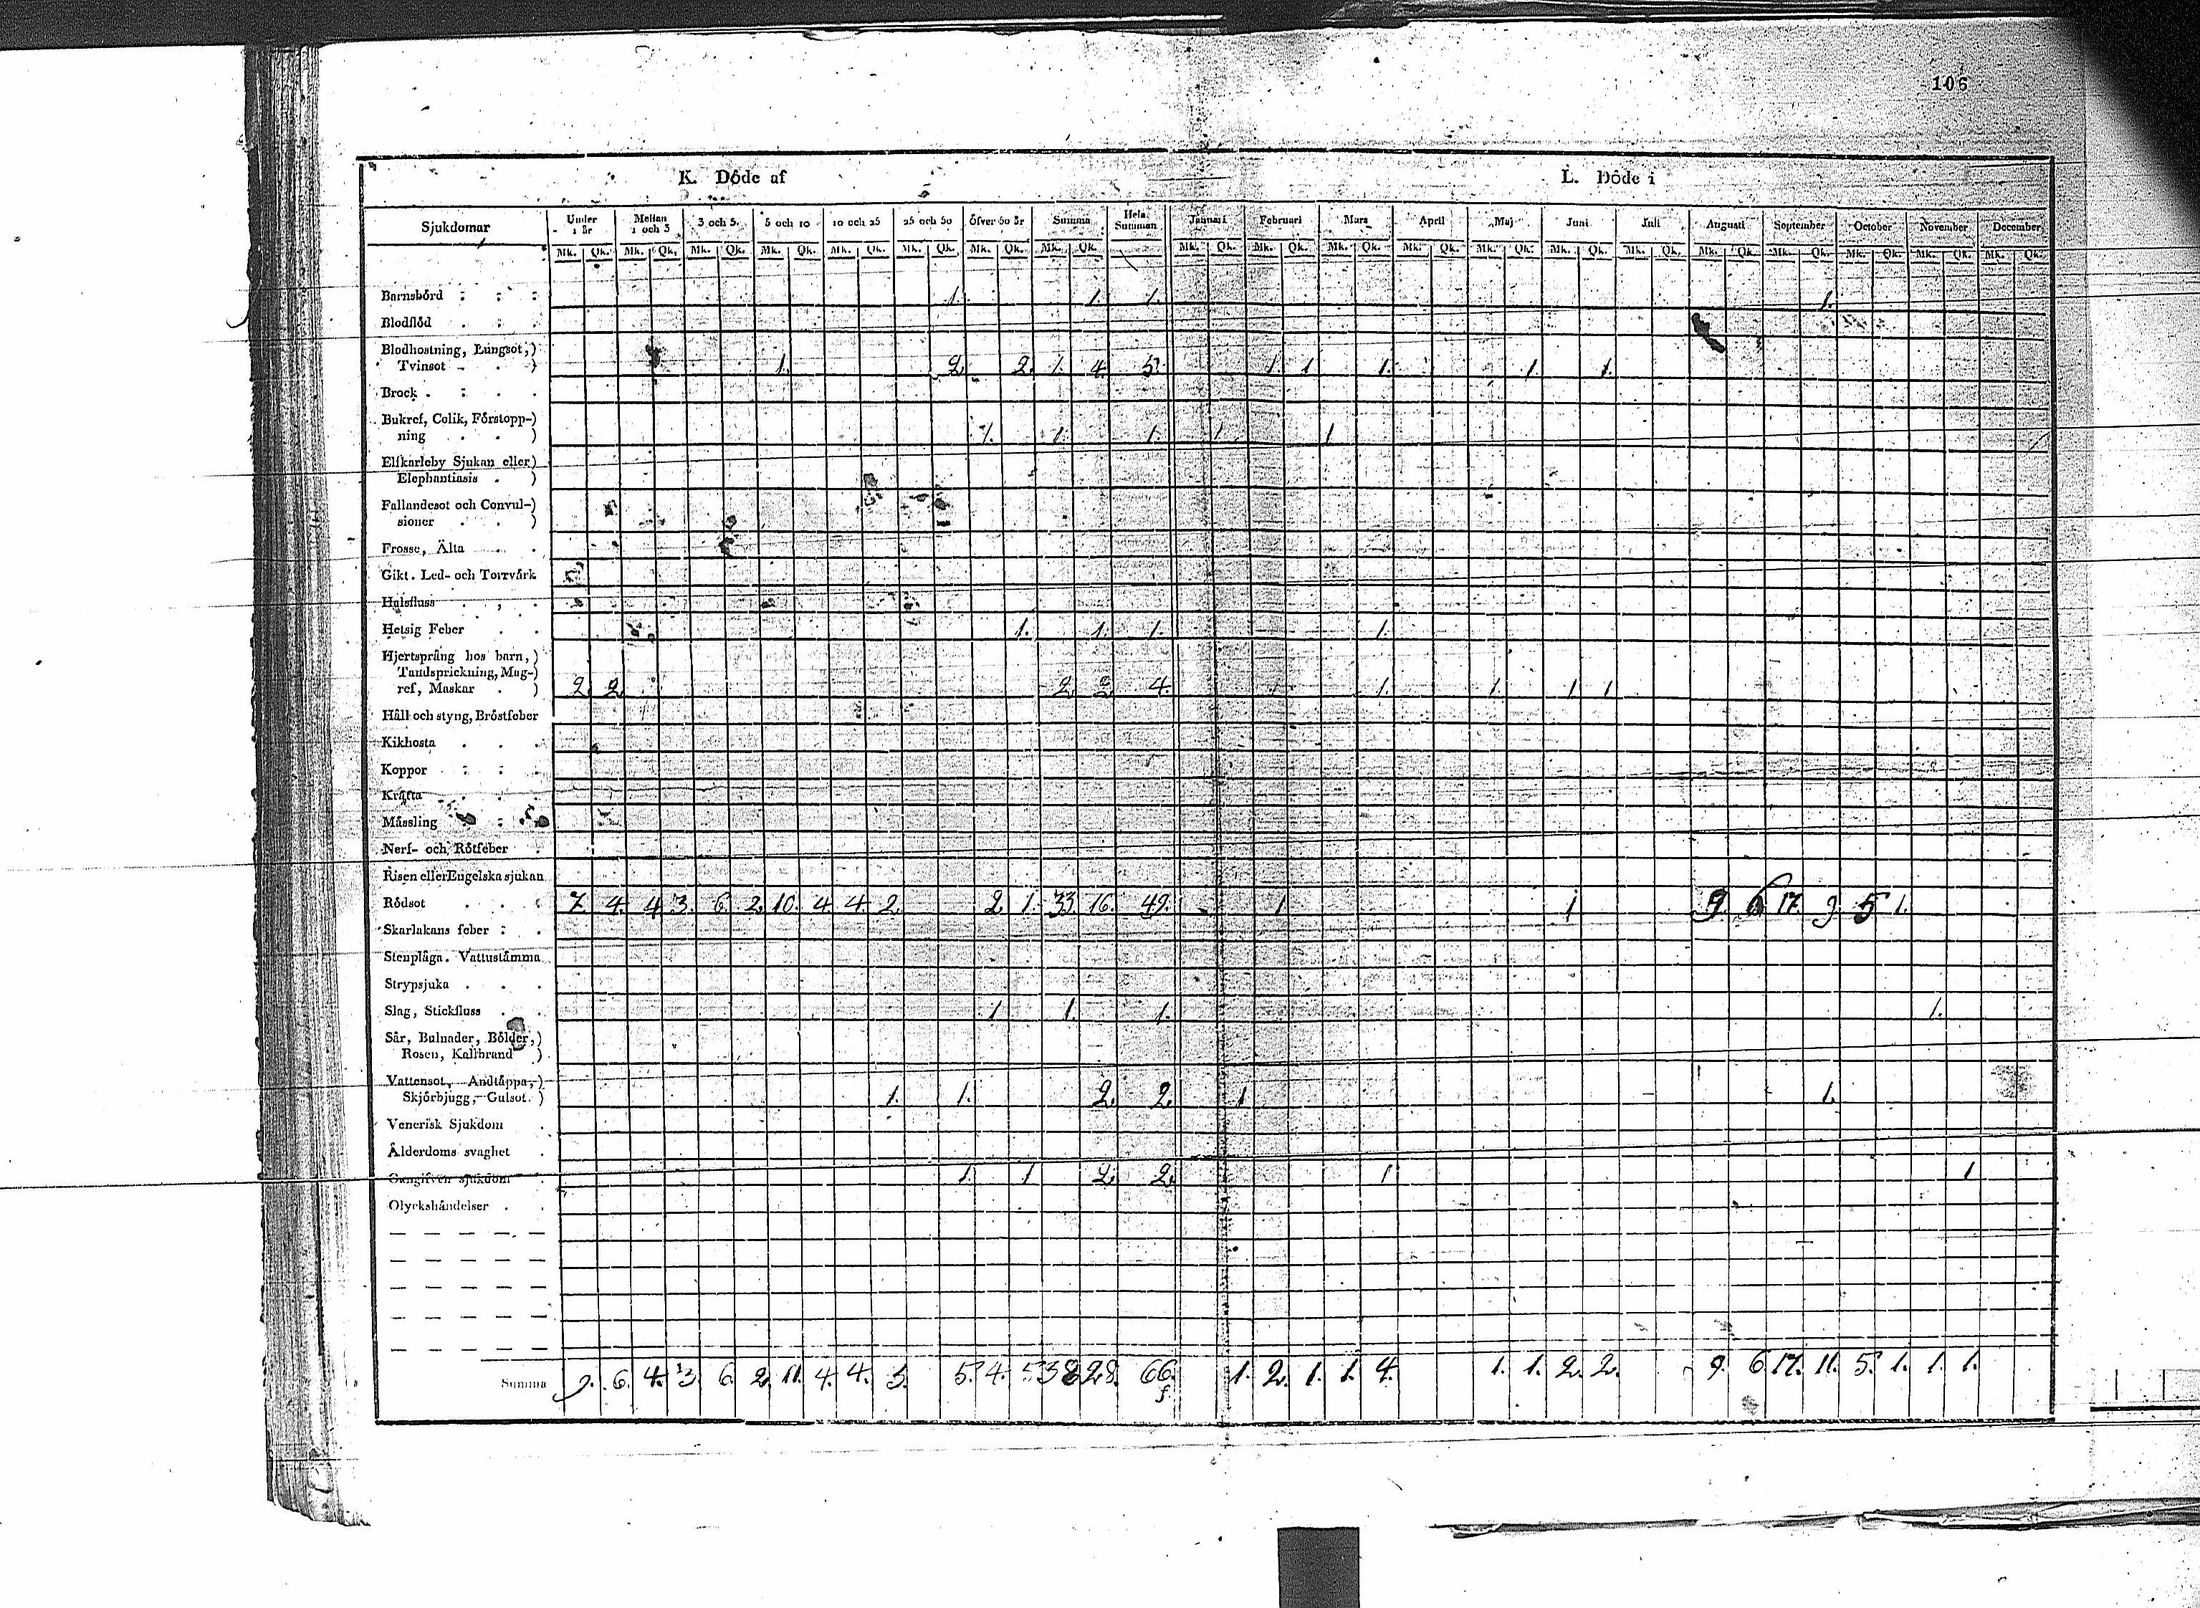 106
K. Döde af L. Döde i
Sjukdomar Under 1 år Mellan 1 och 3 3 och 5 5 och 10 10 och 25 25 och 50 Öfver 50 år Summa Hela Summan Januari Februari Mars April Maj Juni Juli Augusti September October November December
Mk. Qk. Mk. Qk. Mk. Qk. Mk. Qk. Mk. Qk. Mk. Qk. Mk. Qk. Mk. Qk. Mk. Qk. Mk. Qk. Mk. Qk. Mk. Qk. Mk. Qk. Mk. Qk. Mk. Qk. Mk. Qk. Mk. Qk. Mk. Qk. Mk. Qk. Mk. Qk.
Barnsbörd 1. 1. 1. 1.
Blodflöd
Blodhostning, Lungsot,)
Tvinsot 1. 2. 2. 1. 4. 5. 1. 1 1. 1 1.
Brock
Bukref, Colik, Förstopp-)
ning 1. 1. 1. 1 1
Elfkarleby Sjukan eller)
Elephantiasis )
Fallandesot och Convul-)
sioner )
Frosse, Älta
Gikt. Led- och Torrvärk
Halsfluss
Hetsig Feber 1. 1. 1. 1.
Hjertsprång hos barn,)
Tandsprickning, Mag-)
ref, Maskar ) 2. 2. 2. 2. 4. 1. 1. 1 1
Håll och styng, Bröstfeber
Kikhosta
Koppor
Kräfta
Mässling
Nerf- och Rötfeber
Risen eller Engelska sjukan
Rödsot 7. 4. 4. 3. 6. 2. 10. 4. 4. 2. 2. 1. 33. 16. 49. 1 1 9. 6 17. 9. 5 1.
Skarlakans feber
Stenplåga. Vattustämma
Strypsjuka
Slag, Stickfluss 1 1. 1. 1.
Sår, Bulnader, Bölder,)
Rosen, Kallbrand )
Vattensot, Andtäppa,)
Skjörbjugg, Gulsot. ) 1. 1. 2. 2. 1 1.
Venerisk Sjukdom
Ålderdoms svaghet
Oangifven sjukdom 1. 1 2. 2. 1 1
Olyckshändelser
Summa 9. 6. 4. 3. 6. 2. 11. 4. 4. 3. 5. 4. 5 38 28. 66. 1. 2. 1. 1. 4. 1. 1. 2. 2. 9. 6 17. 11. 5. 1. 1. 1.